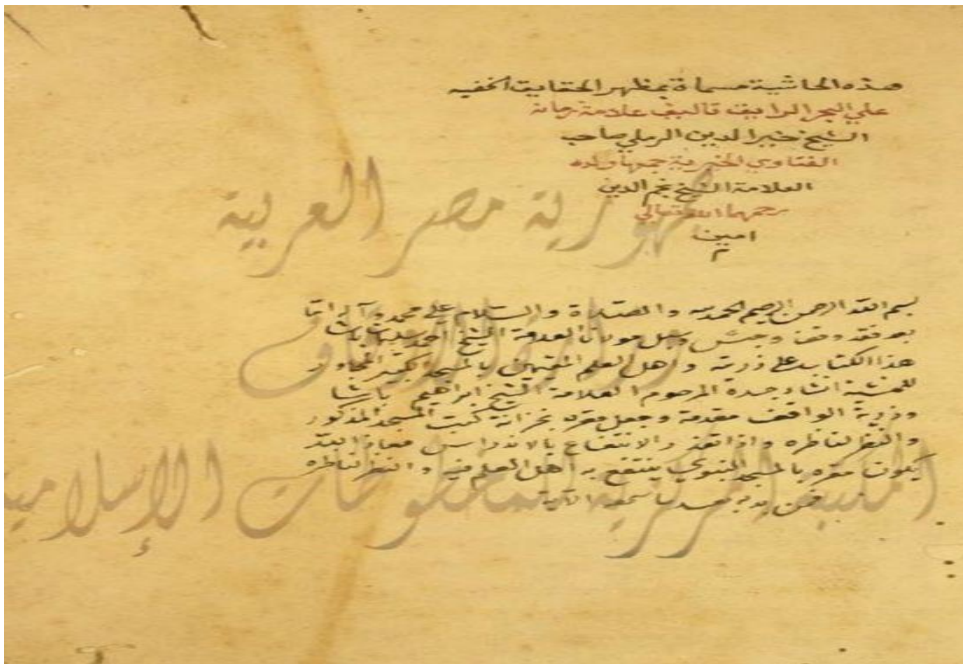 هذه الحاشية مسماة بمظهر الحقايق الخفيه
علي البحر الرايق تاليف علامة زمانه
الشيخ خير الدين الرملي صاحب
الفتاوي الخيرية جمعها ولده
العلامة الشيخ نجم الدين
رحمهما الله تعالي
امين
م
جمهورية مصر العربية
بسم الله الرحمن الرحيم الحمد لله والصلاة والسلام على محمد وآله اما
بعد فقد وقف وحبس وسبل مولانا العلامة الشيخ أحمد باشا
هذا الكتاب على ذريته وأهل العلم المقيمين بالمسجد الكبير المجاور
للمنشية انشاء جده المرحوم العلامة الشيخ ابراهيم باشا
وذرية الواقف مقدمة وجعل مقره بخزانة كتب المسجد المذكور
والنظر لناظره واذا تعذر الانتفاع بالاندراس معاذ الله
يكون مقره بالمسجد ينتفع به أهل العلم فيه والنظر لناظره
فمن بدله بعد ما سمعه الآية
وزارة الأوقاف
المكتبة المركزية للمخطوطات الإسلامية